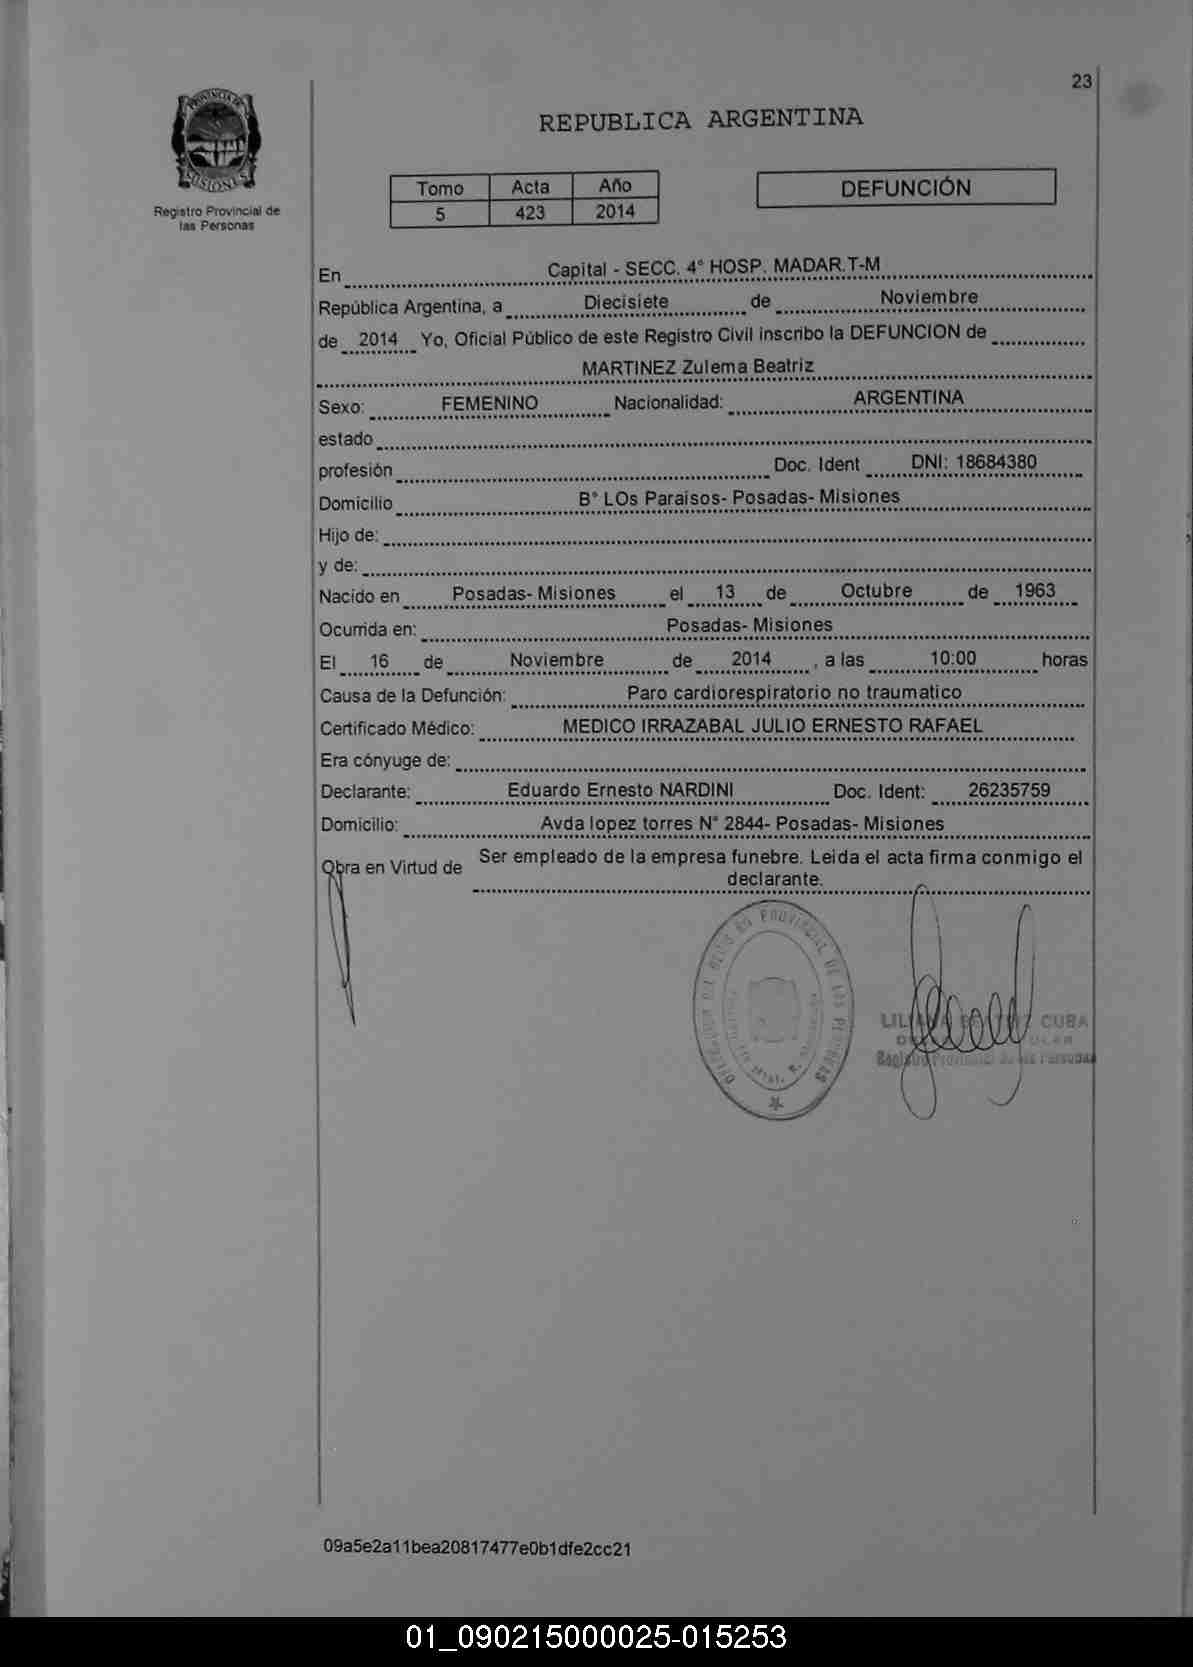 23
PROVINCIA DE
MISIONES
Registro Provincial de
las Personas
REPUBLICA ARGENTINA
Tomo Acta Año
5 423 2014
DEFUNCIÓN
En Capital - SECC. 4° HOSP. MADAR.T-M
República Argentina, a Diecisiete de Noviembre
de 2014 Yo, Oficial Público de este Registro Civil inscribo la DEFUNCION de
MARTINEZ Zulema Beatriz
Sexo: FEMENINO Nacionalidad: ARGENTINA
estado
profesión Doc. Ident DNI: 18684380
Domicilio B° LOs Paraisos- Posadas- Misiones
Hijo de:
y de:
Nacido en Posadas- Misiones el 13 de Octubre de 1963
Ocurrida en: Posadas- Misiones
El 16 de Noviembre de 2014 , a las 10:00 horas
Causa de la Defunción: Paro cardiorespiratorio no traumatico
Certificado Médico: MEDICO IRRAZABAL JULIO ERNESTO RAFAEL
Era cónyuge de:
Declarante: Eduardo Ernesto NARDINI Doc. Ident: 26235759
Domicilio: Avda lopez torres N° 2844- Posadas- Misiones
Obra en Virtud de Ser empleado de la empresa funebre. Leida el acta firma conmigo el
declarante.
PROVINCIAL DE LAS PERSONAS
CUBA
Registro Provincial de las Personas
09a5e2a11bea20817477e0b1dfe2cc21
01_090215000025-015253